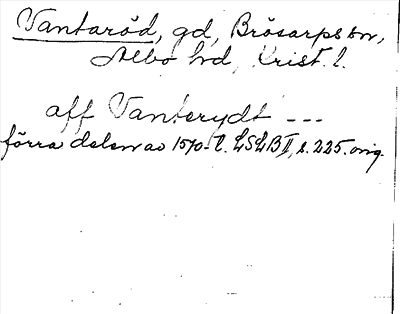 Vantaröd, gd, Brösarps sn,
Albo hd, Krist. l.
aff Vanterydt ---
förra delen av 1570-t. LSLB II, s. 225. orig.